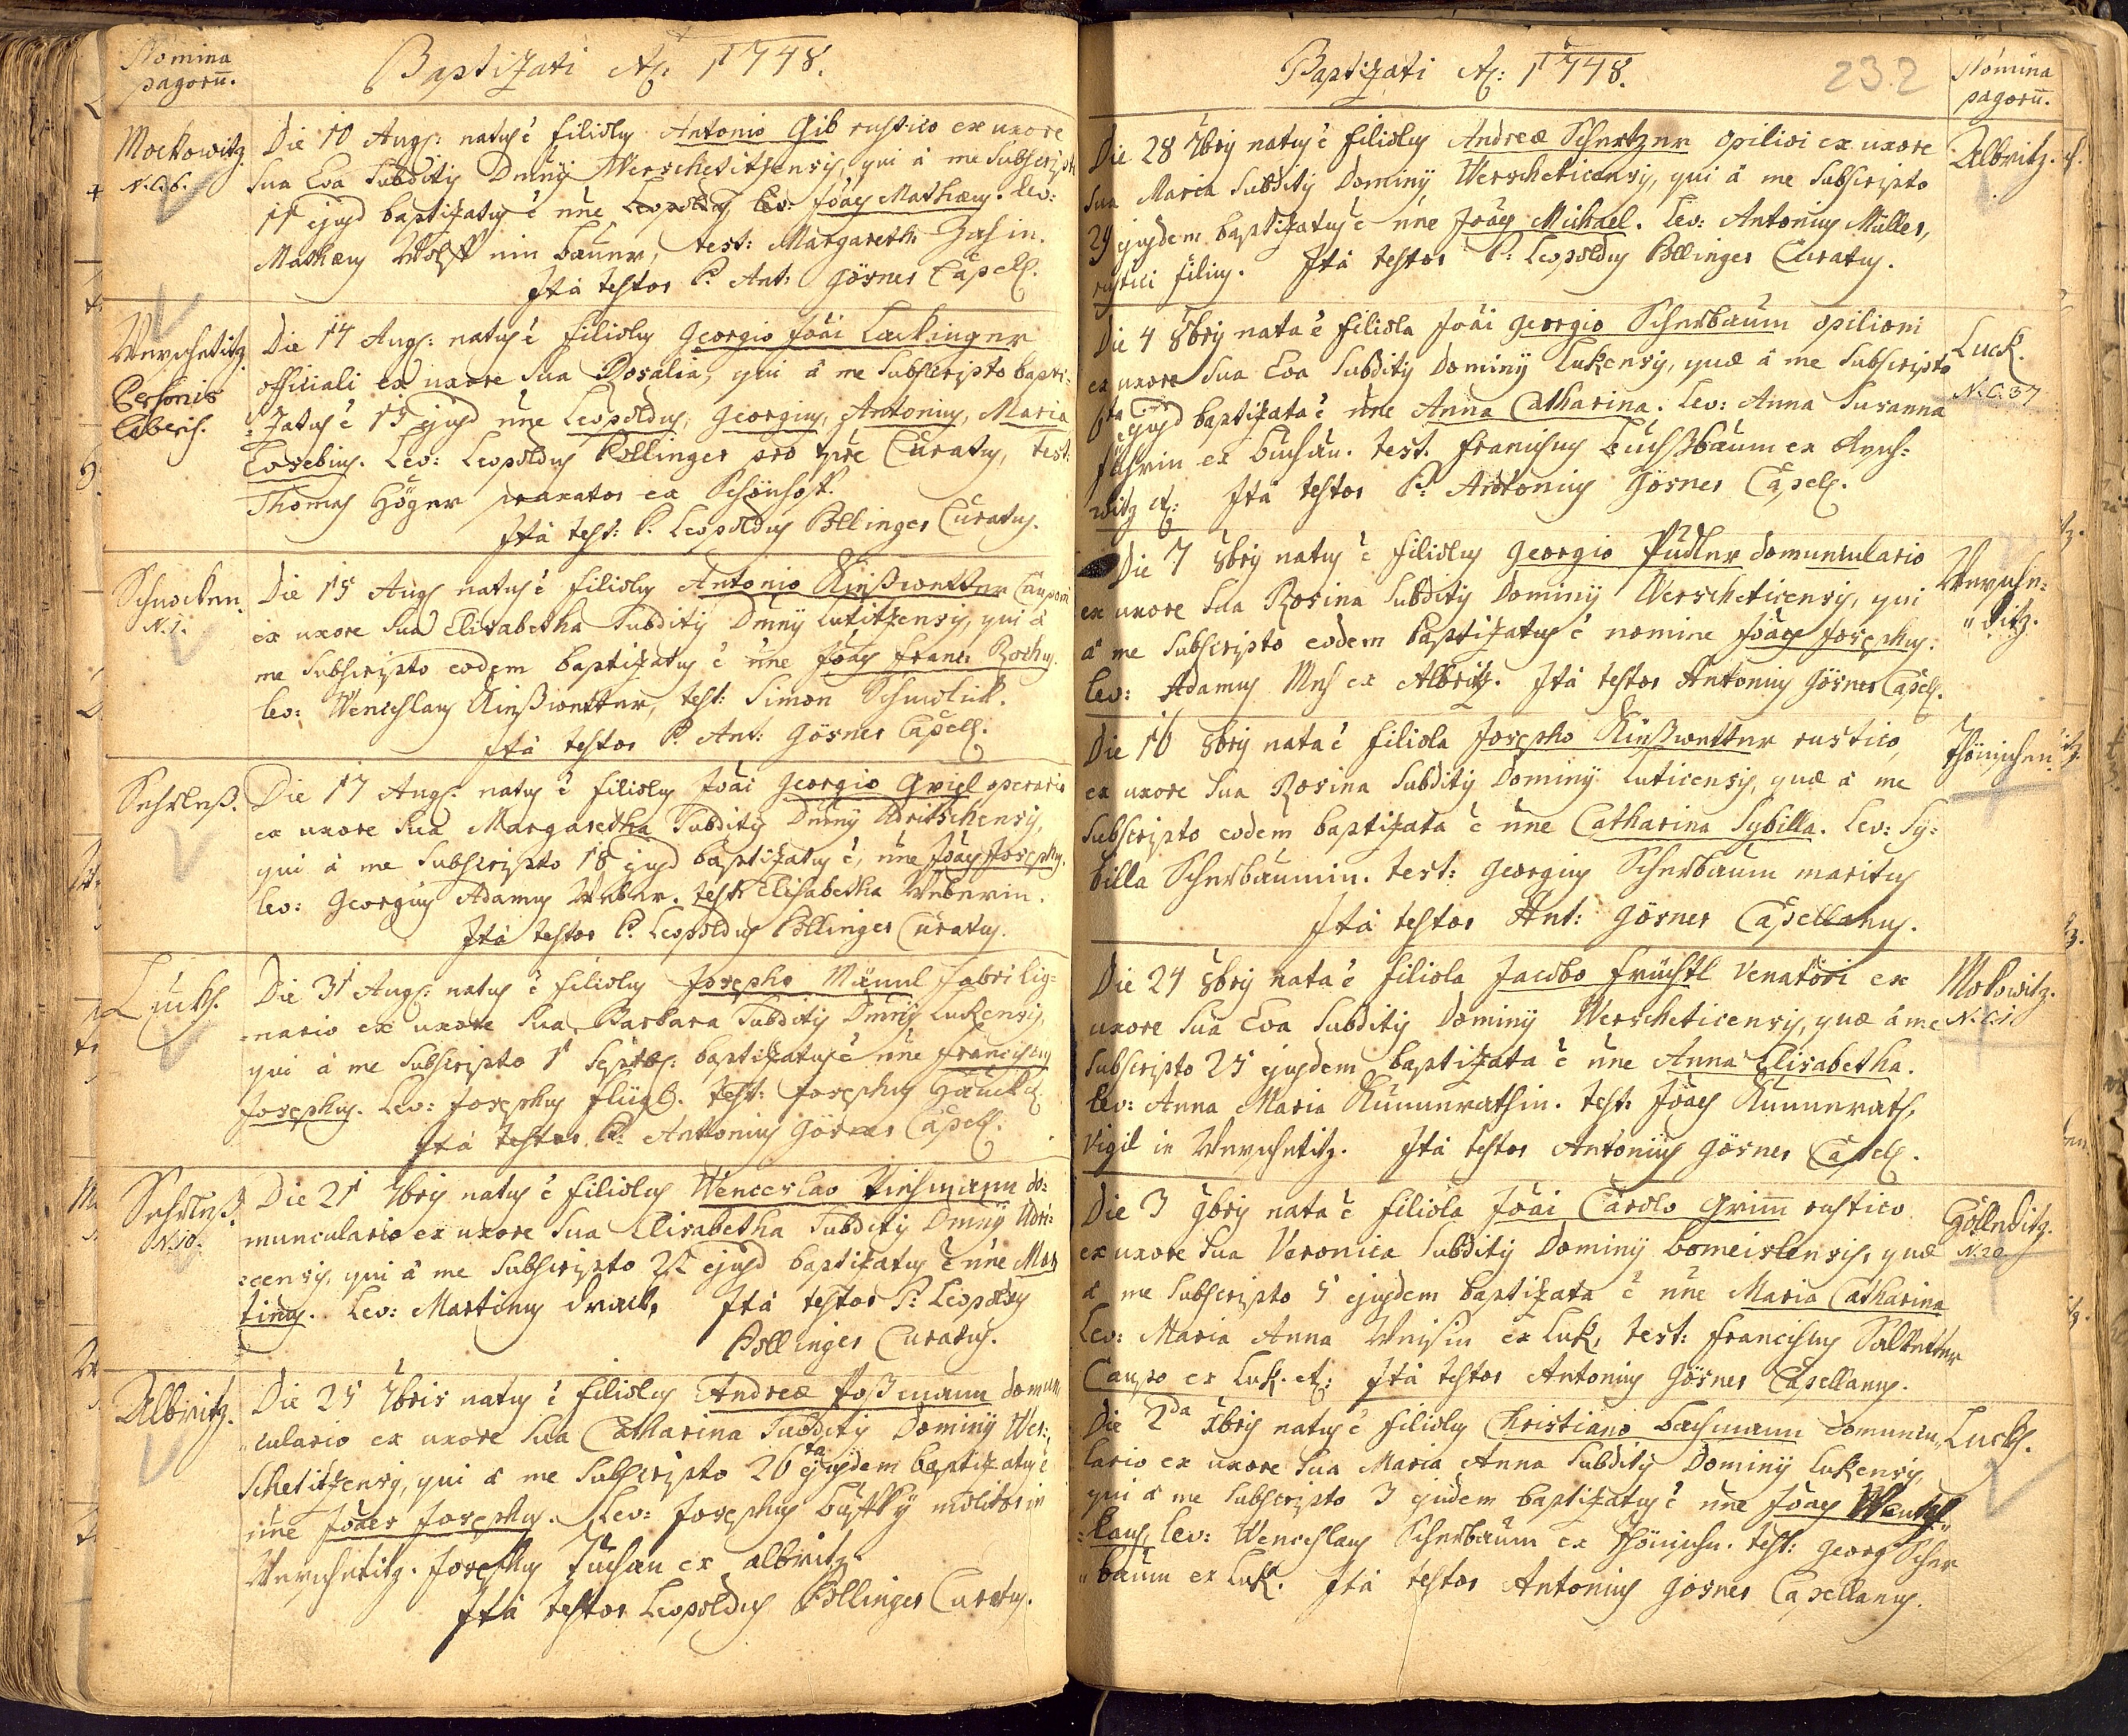 Nomina
pagorū.
Baptizati Aō: 1748.
Mockowitz.
N.C.6.
Die 10 Augs: natus ē filiolus Antonio Gib rustico ex uxore
sua Eva Subditis Dmnÿ Werschetitzensis, qui à me Subscripto
11 ejusd baptizatus ē nñe Leopoldus, lev: Joães Mathæus. Lev:
Mathæus Wolff ein bauer, test: Margareth
Ità testor P. Ant: Görner Capell.
Werschetitz.
Personis
Liberis.
Die 14 Augs: natus ē filiolus Georgio Joãi Lackinger
officiali ex uxore sua Rosalia, qui à me Subscripto bapti-
zatus ē 15 ejusd nñe Leopoldus, Georgius, Antonius, Maria
Eusebius. Lev: Leopoldus Pollinger pro tpre Curatus, test:
Thomas Höger ex Schönhoff.
Ità test: P. Leopoldus Pollinger Curatus.
N.1.
Die 15 Augs natus ē filiolus Antonio Kinßwetter Cauponi
ex uxore sua Elisabetha Subditis Dmnÿ Lutitzensis, qui à
me Subscripto eodem baptizatus ē nñe Joães Franc: Rochus.
lev: Wenceslaus Kinßwetter, test: Simon
ità testor P. Ant: Görner Capell.
Sehrleß.
Die 17 Augs: natus ē filiolus Joãi Georgio Griegl operario
ex uxore sua Margaretha Subditis Dmnÿ Udritschensis,
qui à me Subscripto 18 ejusd baptizatus ē, nñe Joães Josephus.
lev: Georgius Adamus Weber. test: Elisabetha Weberin.
Ità testor P. Leopoldus Pollinger Curatus.
Luck.
Die 31 Augs: natus ē filiolus Josepho Männl fabri lig-
nario ex uxore sua Barbara Subditis Dmnÿ Lukensis,
qui à me Subscripto 1 Septbr: baptizatus ē nñe Franciscus
Josephus. Lev: Josephus Flügl. Test: Josephus
ità testor P. Antonius Görner Capell.
Sehrleß.
N.10.
Die 21 7bris natus ē filiolus Wenceslao Tirschmann do-
munculario ex uxore sua Elisabetha Subditis Dmnÿ Udri-
censis, qui à me Subscripto 22 ejusd baptizatus ē nñe Mar
tinus. Lev: Martinus Ità testor P. Leopoldus
Pollinger Curatus.
Albritz.
Die 25 7bris natus ē filiolus Andreæ Poßmann domun
culario ex uxore sua Catharina Subditis Dominÿ Wer-
schetitzensis, qui à me Subscripto 26ta ejusdem baptizatus ē
nñe Joães Josephus. Lev: Josephus molitor in
Werschetitz. Josephus Fuchsen ex Albritz.
Ità testor Leopoldus Pollinger Curatus.
Baptizati Aō: 1748.
232
Nomina
pagorū.
Die 28 7bris natus ē filiolus Andreæ Schertzer opilioi ex uxore
sua Maria Subditis Dominÿ Werscheticensis, qui à me Subscripto
29 ejusdem baptizatus ē nñe Joães Michael. Lev: Antonius Müller,
rustici filius. Ità testor P: Leopoldus Pollinger Curatus.
Albritz.
Die 4 8bris nata ē filiola Joãi Georgio Scherbaum opilioni
ex uxore sua Eva Subditis Dominÿ Lukensis, quæ à me Subscripto
6ta ejusd baptizata ē nñe Anna Catharina. Lev: Anna Susanna
ex Buchau. test. Franciscus Buchßbaum ex
witz Ità testor P: Antonius Görner Capell.
Luck.
N.C.37
Die 7 8bris natus ē filiolus Georgio Pudler domunculario
ex uxore sua Rosina Subditis Dominÿ Werscheticensis, qui
à me Subscripto eodem baptizatus ē nomine Joães Josephus.
lev: Adamus ex Albritz. Ità testor Antonius Görner Capell.
Wersche-
titz.
Die 16 8bris nata ē filiola Josepho Kinßwetter rustico
ex uxore sua Rosina Subditis Dominÿ Luticensis, quæ à me
Subscripto eodem baptizata ē nñe Catharina Sybilla. Lev: Sy-
billa Scherbaumin. test: Georgius Scherbaum maritus
Ità testor Ant: Görner Capellanus.
Die 24 8bris nata ē filiola Jacobo Früchtl Venatori ex
uxore sua Eva Subditis Dominÿ Werscheticensis, quæ à me
Subscripto 25 ejusdem baptizata ē nñe Anna Elisabetha.
lev: Anna Maria Kunnerathin. test: Joães Kunnerath,
Vigil in Werschetitz. Ità testor Antonius Görner Capell.
Mokowitz.
N.C.1.
Die 3 9bris nata ē filiola Joãi Carolo Grim̄ rustico
ex uxore sua Veronica Subditis Dominÿ Lomeislensis, quæ
à me Subscripto 5 ejusdem baptizata ē nñe Maria Catharina
Lev: Maria Anna Weisin ex Luk, test: Franciscus
Caupo ex Luk. Ità testor Antonius Görner Capellanus.
N.20.
Die 2da Xbris natus ē filiolus Christiano Bachmann domuncu-
lario ex uxore sua Maria Anna Subditis Dominÿ Lukensis,
qui à me Subscripto 3 ejudem baptizatus ē nñe Joães Wences-
laus, lev: Wenceslaus Scherbaum ex test: Georg Scher
baum ex Luk. Ità testor Antonius Görner Capellanus.
Luck.